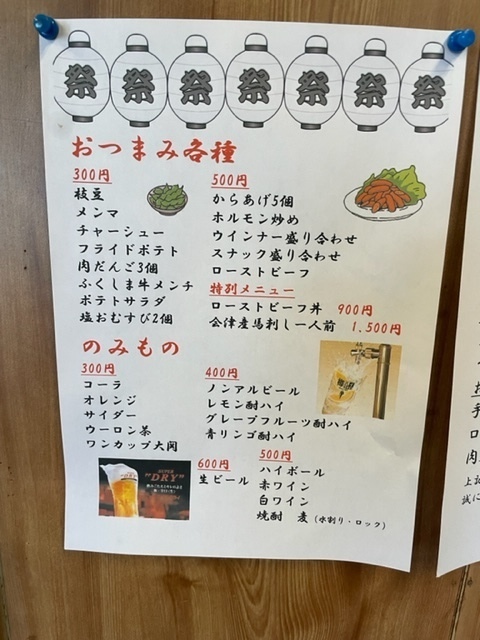 祭 祭 祭 祭 祭 祭 祭
おつまみ各種
300円
枝豆
メンマ
チャーシュー
フライドポテト
肉だんご3個
ふくしま牛メンチ
ポテトサラダ
塩おむすび2個
500円
からあげ5個
ホルモン炒め
ウインナー盛り合わせ
スナック盛り合わせ
ローストビーフ
特別メニュー
ローストビーフ丼 900円
会津産馬刺し一人前 1,500円
のみもの
300円
コーラ
オレンジ
サイダー
ウーロン茶
ワンカップ大関
400円
ノンアルビール
レモン酎ハイ
グレープフルーツ酎ハイ
青リンゴ酎ハイ
SUPER
"DRY"
600円
生ビール
500円
ハイボール
赤ワイン
白ワイン
焼酎 麦 (水割り・ロック)
手
ロ
肉
上記
試に